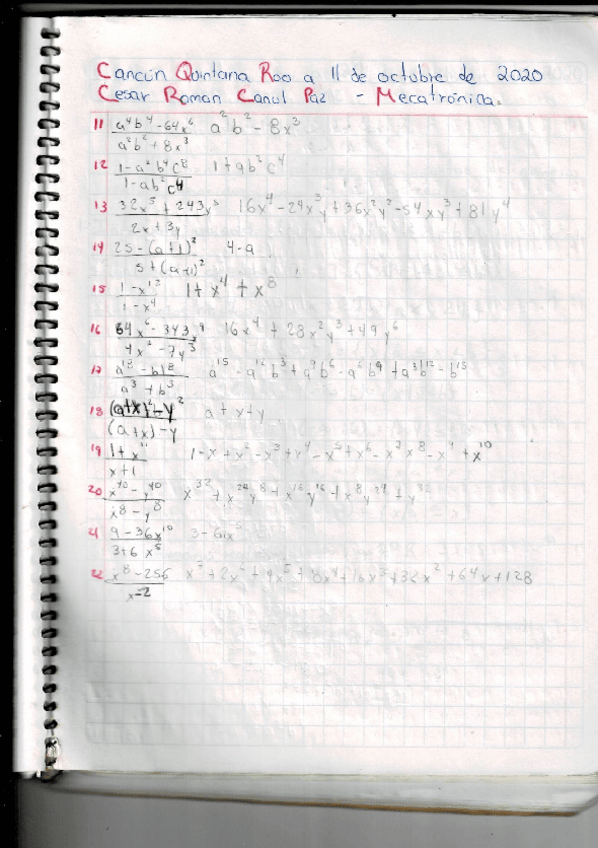 Cancún Quintana Roo a 11 de octubre de 2020
Cesar Roman Canul Paz - Mecatrónica.
11 a⁴b⁴-64x⁶ a²b²-8x³
a²b²+8x³
12 1-a²b⁴c⁸ 1+ab²c⁴
1-ab²c⁴
13 32x⁵+243y⁵ 16x⁴-24x³y+36x²y²-54xy³+81y⁴
2x+3y
14 25-(a+1)² 4-a
5+(a+1)²
15 1-x¹² 1+x⁴+x⁸
1-x⁴
16 64x⁶-343y⁹ 16x⁴+28x²y³+49y⁶
4x²-7y³
17 a¹⁸-b¹⁸ a¹⁵-a¹²b³+a⁹b⁶-a⁶b⁹+a³b¹²-b¹⁵
a³+b³
18 (a+x)²-y² a+x+y
(a+x)-y
19 1+x¹¹ 1-x+x²-x³+x⁴-x⁵+x⁶-x⁷x⁸-x⁹+x¹⁰
x+1
20 x⁴⁰-y⁴⁰ x³²+x²⁴y⁸+x¹⁶y¹⁶+x⁸y²⁴+y³²
x⁸-y⁸
21 9-36x¹⁰ 3-6x⁵
3+6x⁵
22 x⁸-256 x⁷+2x⁶+4x⁵+8x⁴+16x³+32x²+64x+128
x-2